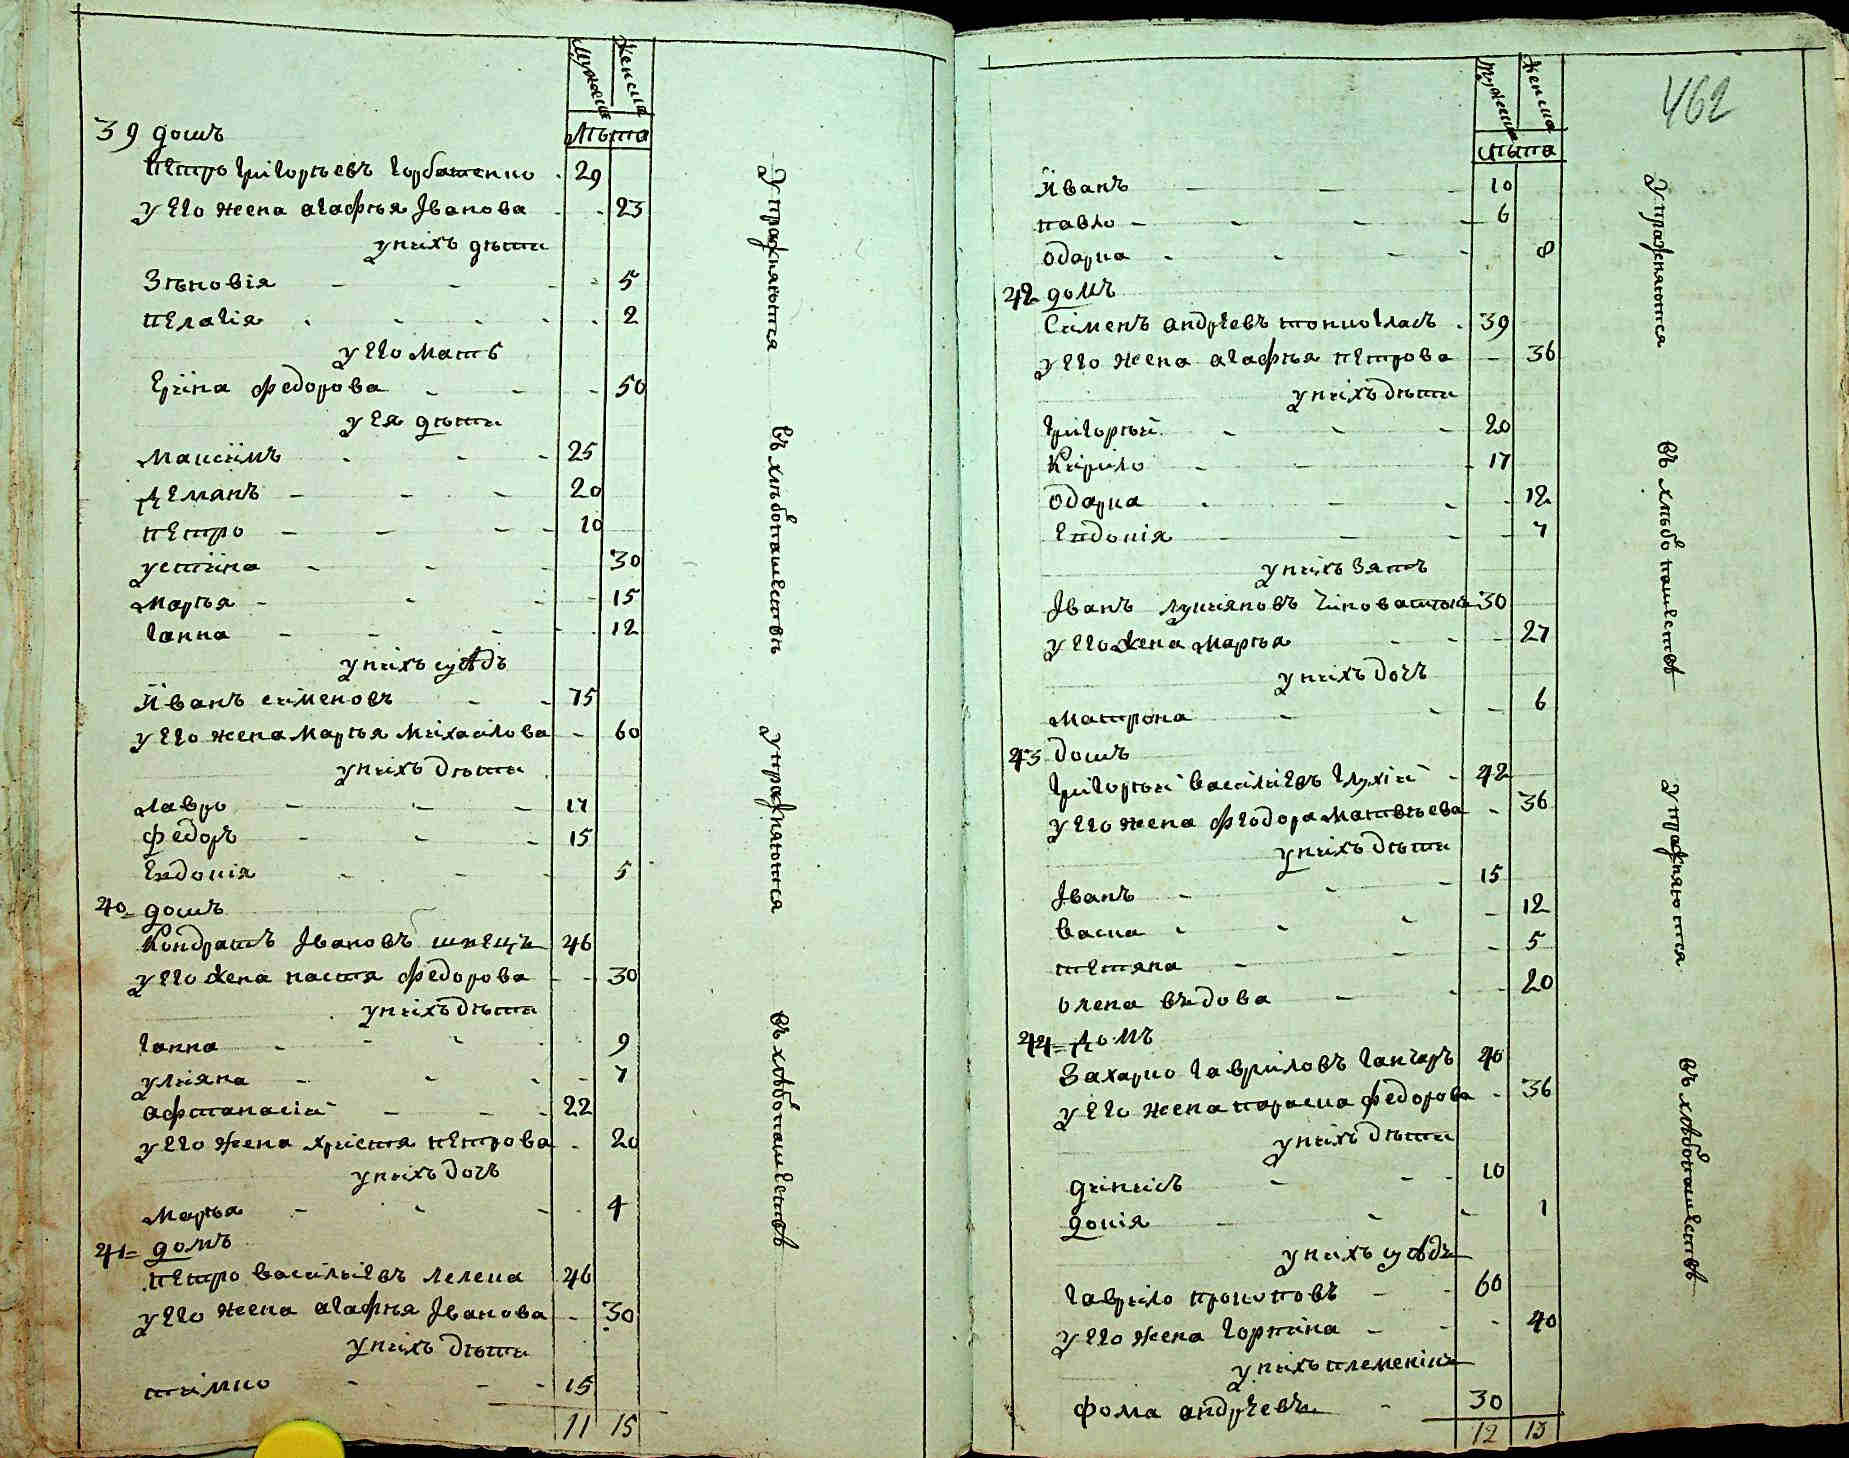 Мужеска
Женска
Лѣта
39 домъ
Петро Григорьевъ Горбатенко 29
у его жена агафья Іванова 23
у нихъ дѣти
Зѣновія 5
пелагія 2
у его мать
Ерина федорова 50
у ея дѣти
Максимъ 25
Деманъ 20
петро 10
устина 30
марья 15
ганна 12
у нихъ сусѣдъ
Иванъ сименовъ 75
у его жена марья михаилова 60
у нихъ дѣти
лавро 17
федоръ 15
Евдокія 5
40 домъ
Кондратъ Івановъ швецъ 46
у его жена настя федорова 30
у нихъ дѣти
ганна 9
улияна 7
афтанасій 22
у его жена христя петрова 20
у нихъ дочь
марья 4
41 домъ
петро василіевъ лелека 46
у его жена агафья Іванова 30
у нихъ дѣти
тимко 15
11 15
упражняются
въ хлѣбопашествѣ
упражняются
въ хлѣбопашествѣ
462
Мужеска
Женска
Лѣта
Иванъ 10
павло 6
одарка 8
42 домъ
Сименъ андрѣевъ 39
у его жена агафья петрова 36
у нихъ дѣти
григорьій 20
Кирило 17
одарка 12
Евдокія 7
у нихъ зять
Іванъ лукияновъ 30
у его жена марья 27
у нихъ дочь
матрона 6
43 домъ
григорьий василиевъ глухій 42
у его жена феодора матвѣева 36
у нихъ дѣти
Іванъ 15
васка 12
тетяна 5
олена вдова 20
44 домъ
Захарко гавриловъ ганчаръ 40
у его жена параска федорова 36
у нихъ дѣти
динисъ 10
докія 1
у нихъ сусѣдъ
гаврило прокоповъ 60
у его жена горпина 40
у нихъ племенікъ
фома андрѣевъ 30
12 13
упражняются
въ хлѣбопашествѣ
упражняются
въ хлѣбопашествѣ